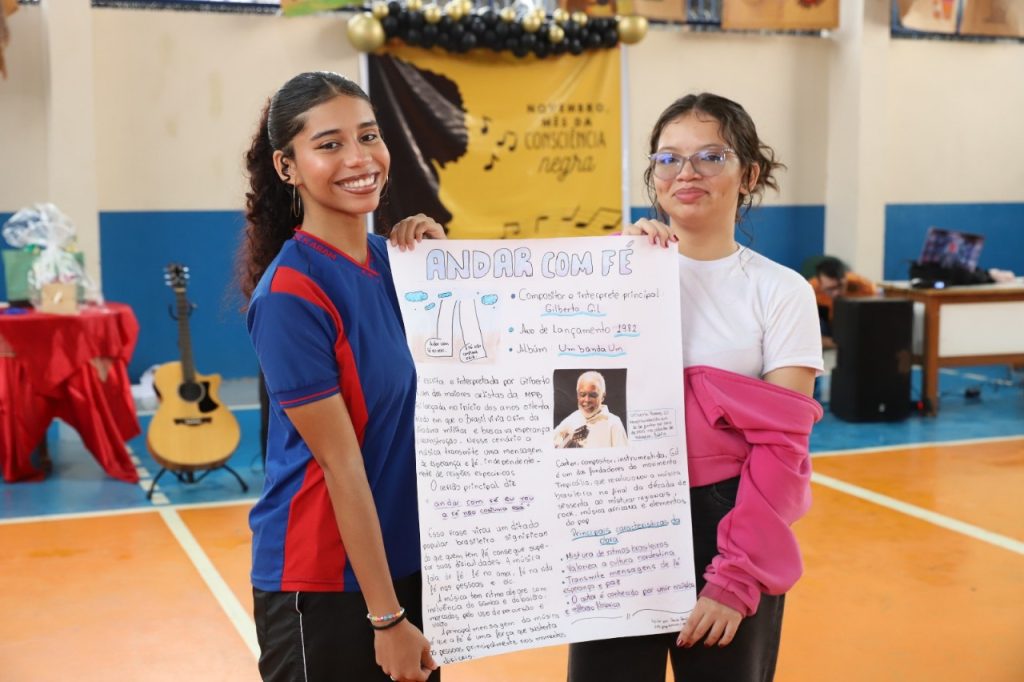 NOVEMBRO,
MÊS DA
CONSCIÊNCIA
negra
ANDAR COM FÉ
• Compositor e intérprete principal
Gilberto Gil
• Ano de Lançamento 1982
• Álbum Um banda Um
e interpretada por Gilberto
dos maiores artistas da MPB
lançada no início dos anos oitenta
em que o Brasil vivia o fim da
militar e buscava esperança
Nesse cenário a
música transmite uma mensagem
esperança e fé, independente-
de religiões específicas
O refrão principal diz
"andar com fé eu vou
a fé não costuma
Essa frase virou um ditado
popular brasileiro significan-
do que quem tem fé consegue supe-
rar suas dificuldades. A música
fala de fé no amor, fé na vida
fé nas pessoas e etc.
A música tem ritmo alegre com
influência do samba e do baião
marcados pelo uso de percussão e
violão
A principal mensagem da música
é que a fé é uma força que sustenta
as pessoas principalmente nos momentos
difíceis.
Cantor, compositor, instrumentista, Gil
é um dos fundadores do movimento
Tropicália, que revolucionou a música
brasileira no final da década de
ao misturar regionais,
rock, música africana e elementos
do pop
Principais características da
obra
• Mistura de ritmos brasileiros
• Valoriza a cultura nordestina
• Transmite mensagens de fé
esperança e paz
• O autor é conhecido por unir música
e reflexão filosófica